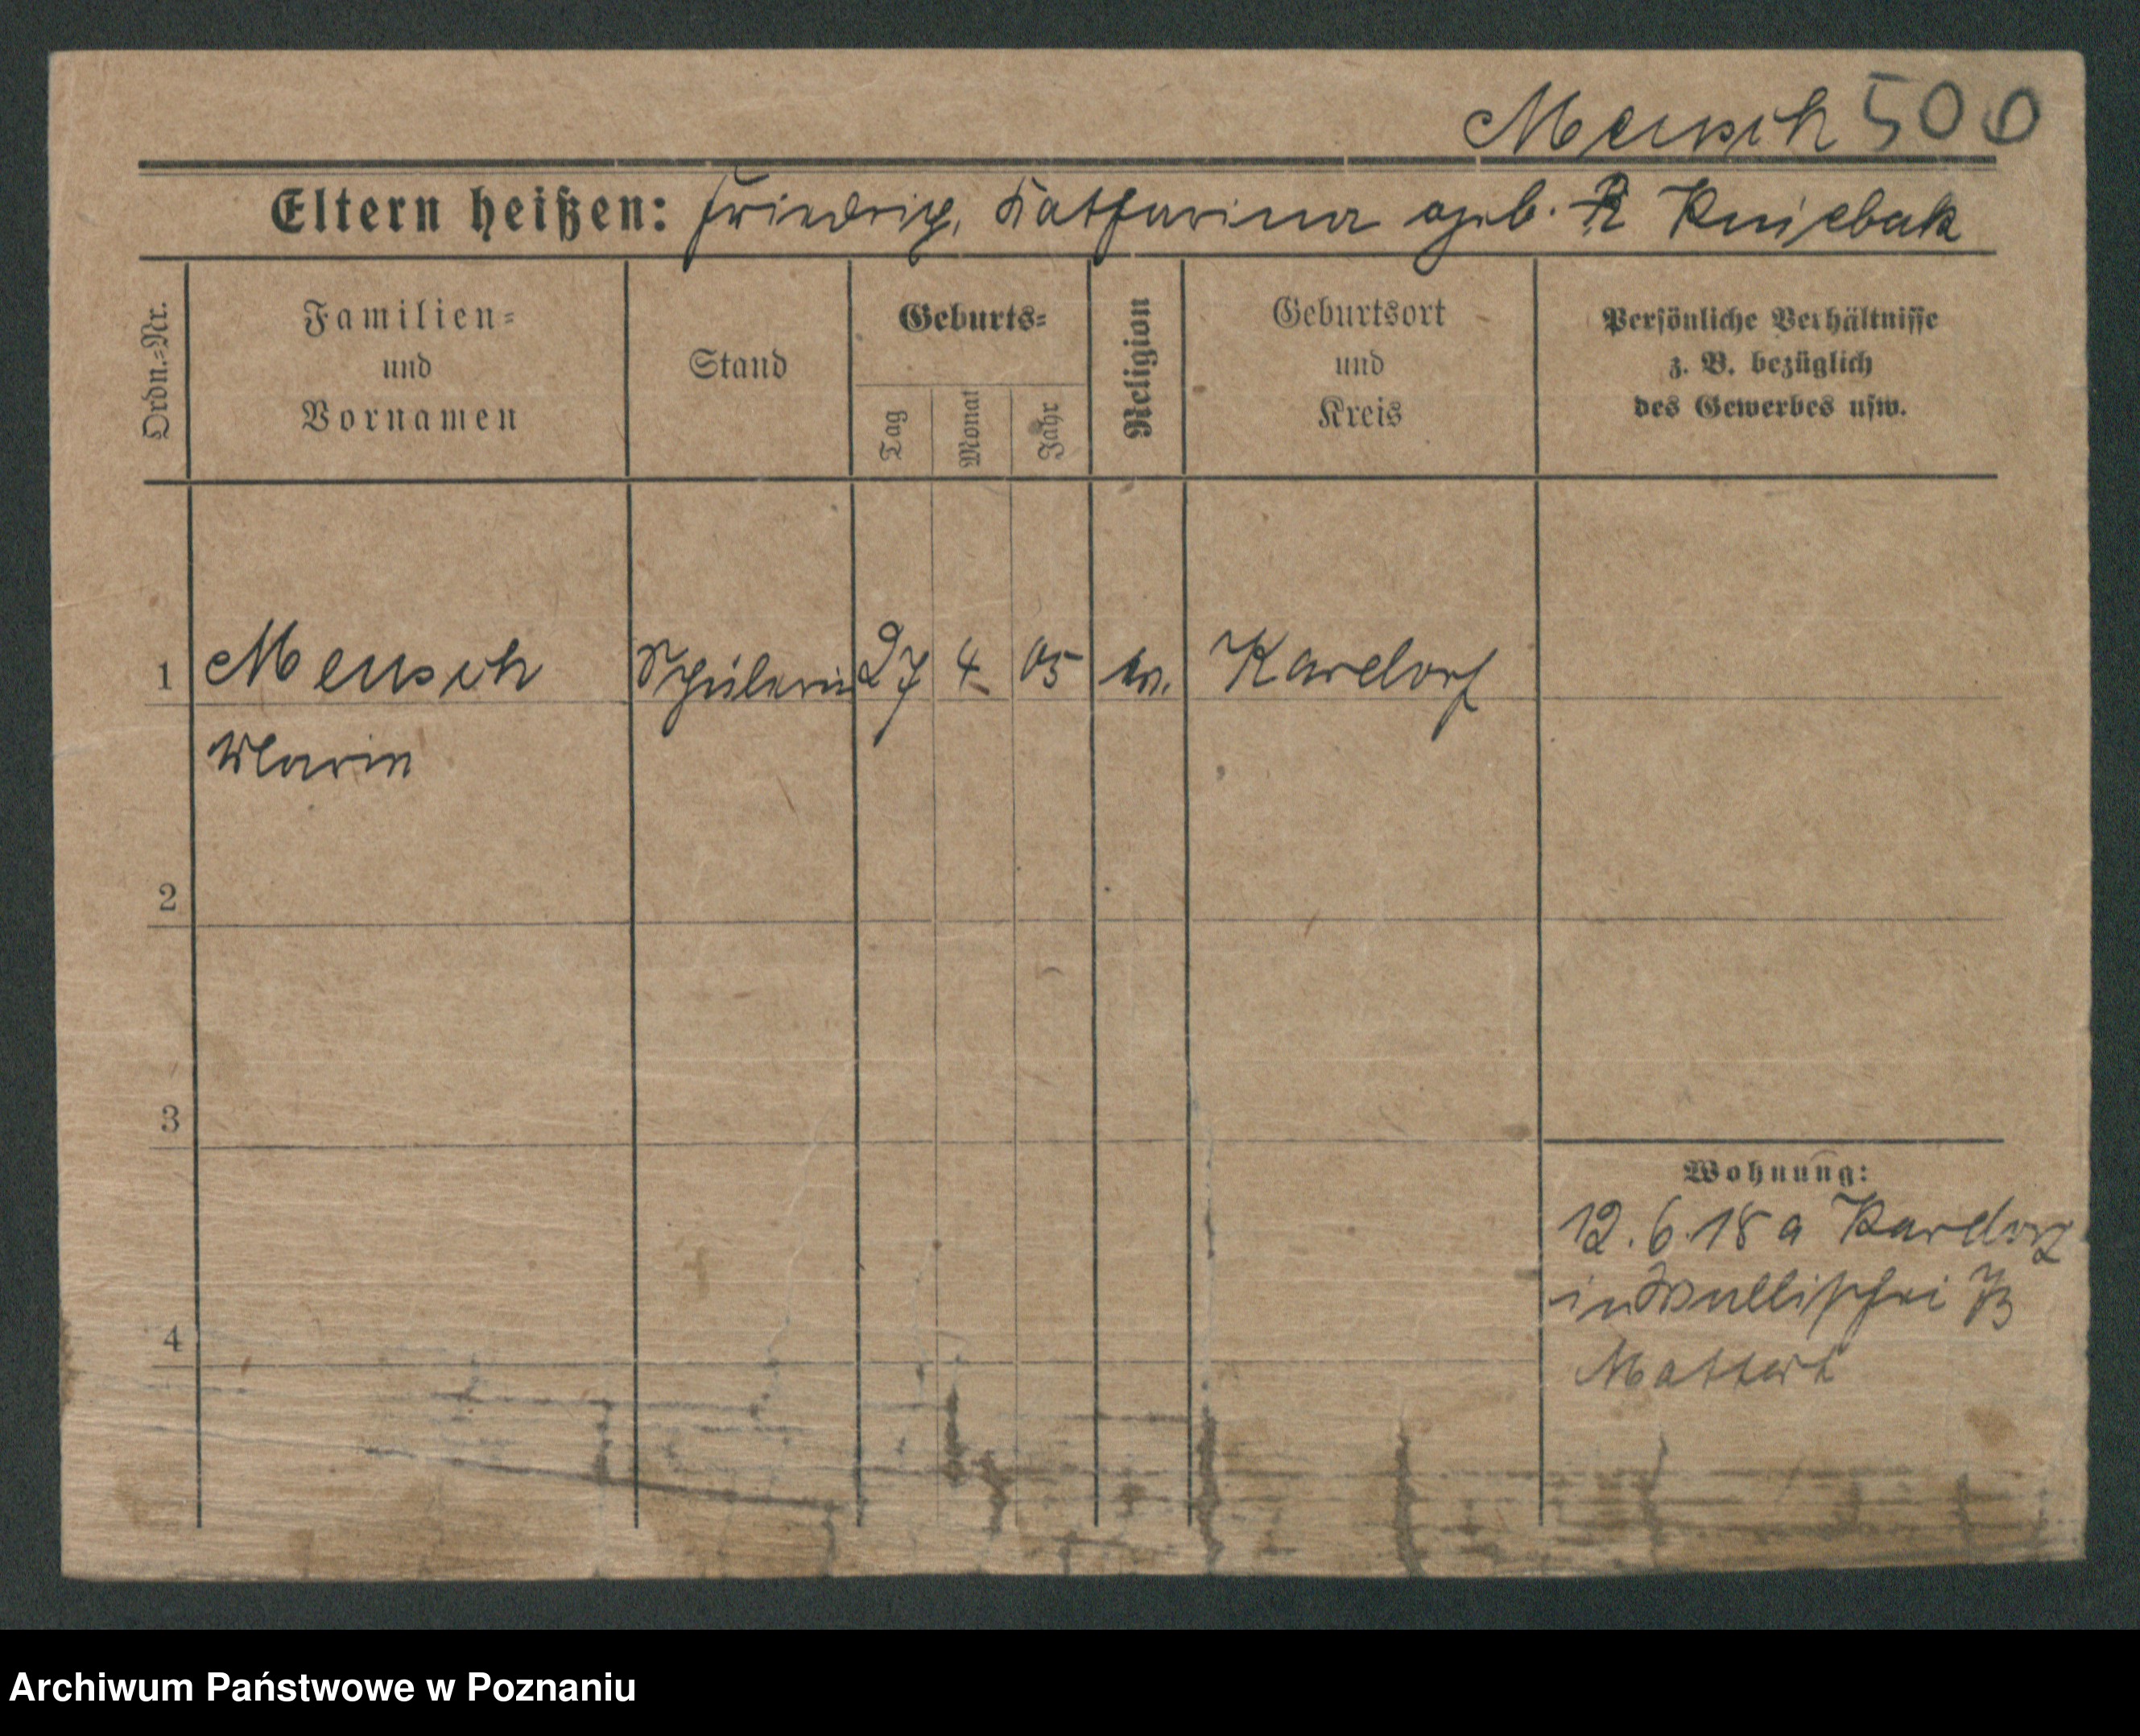 Mensch 500
Eltern heißen: Friedrich, Katharina geb. Kniebak
Ordn.-Nr.
Familien-
und
Vornamen
Stand
Geburts-
Tag
Monat
Jahr
Religion
Geburtsort
und
Kreis
Persönliche Verhältnisse
z. B. bezüglich
des Gewerbes usw.
1 Mensch Schülerin 27 4 05 ev. Kardorf
Marie
2
3
4
Wohnung:
12.6.18 a Kardorf
in
Archiwum Państwowe w Poznaniu